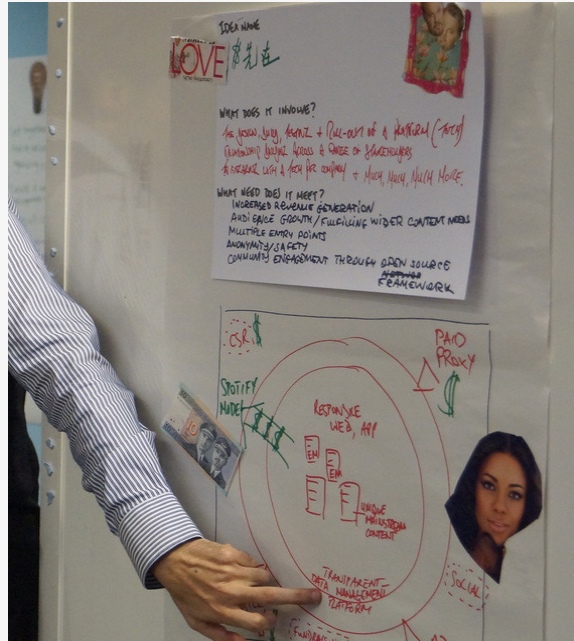 IDEA NAME
LOVE
WHAT DOES IT INVOLVE?
THE DESIGN, BUILD, + ROLL-OUT OF A PLATFORM (TECH)
RELATIONSHIP ACROSS A RANGE OF STAKEHOLDERS
WITH A TECH COMPANY + MUCH, MUCH, MUCH MORE.
WHAT NEED DOES IT MEET?
INCREASED REVENUE GENERATION
AUDIENCE GROWTH/FULFILLING WIDER CONTENT NEEDS
MULTIPLE ENTRY POINTS
ANONYMITY/SAFETY
COMMUNITY ENGAGEMENT THROUGH OPEN SOURCE
FRAMEWORK
CSR $
PAID
PROXY
$
SPOTIFY
MODEL
$$$
10
RESPONSIVE
WEB, APP
EM
EM
UNIQUE
MAINSTREAM
CONTENT
TRANSPARENT
DATA MANAGEMENT
PLATFORM
SOCIAL